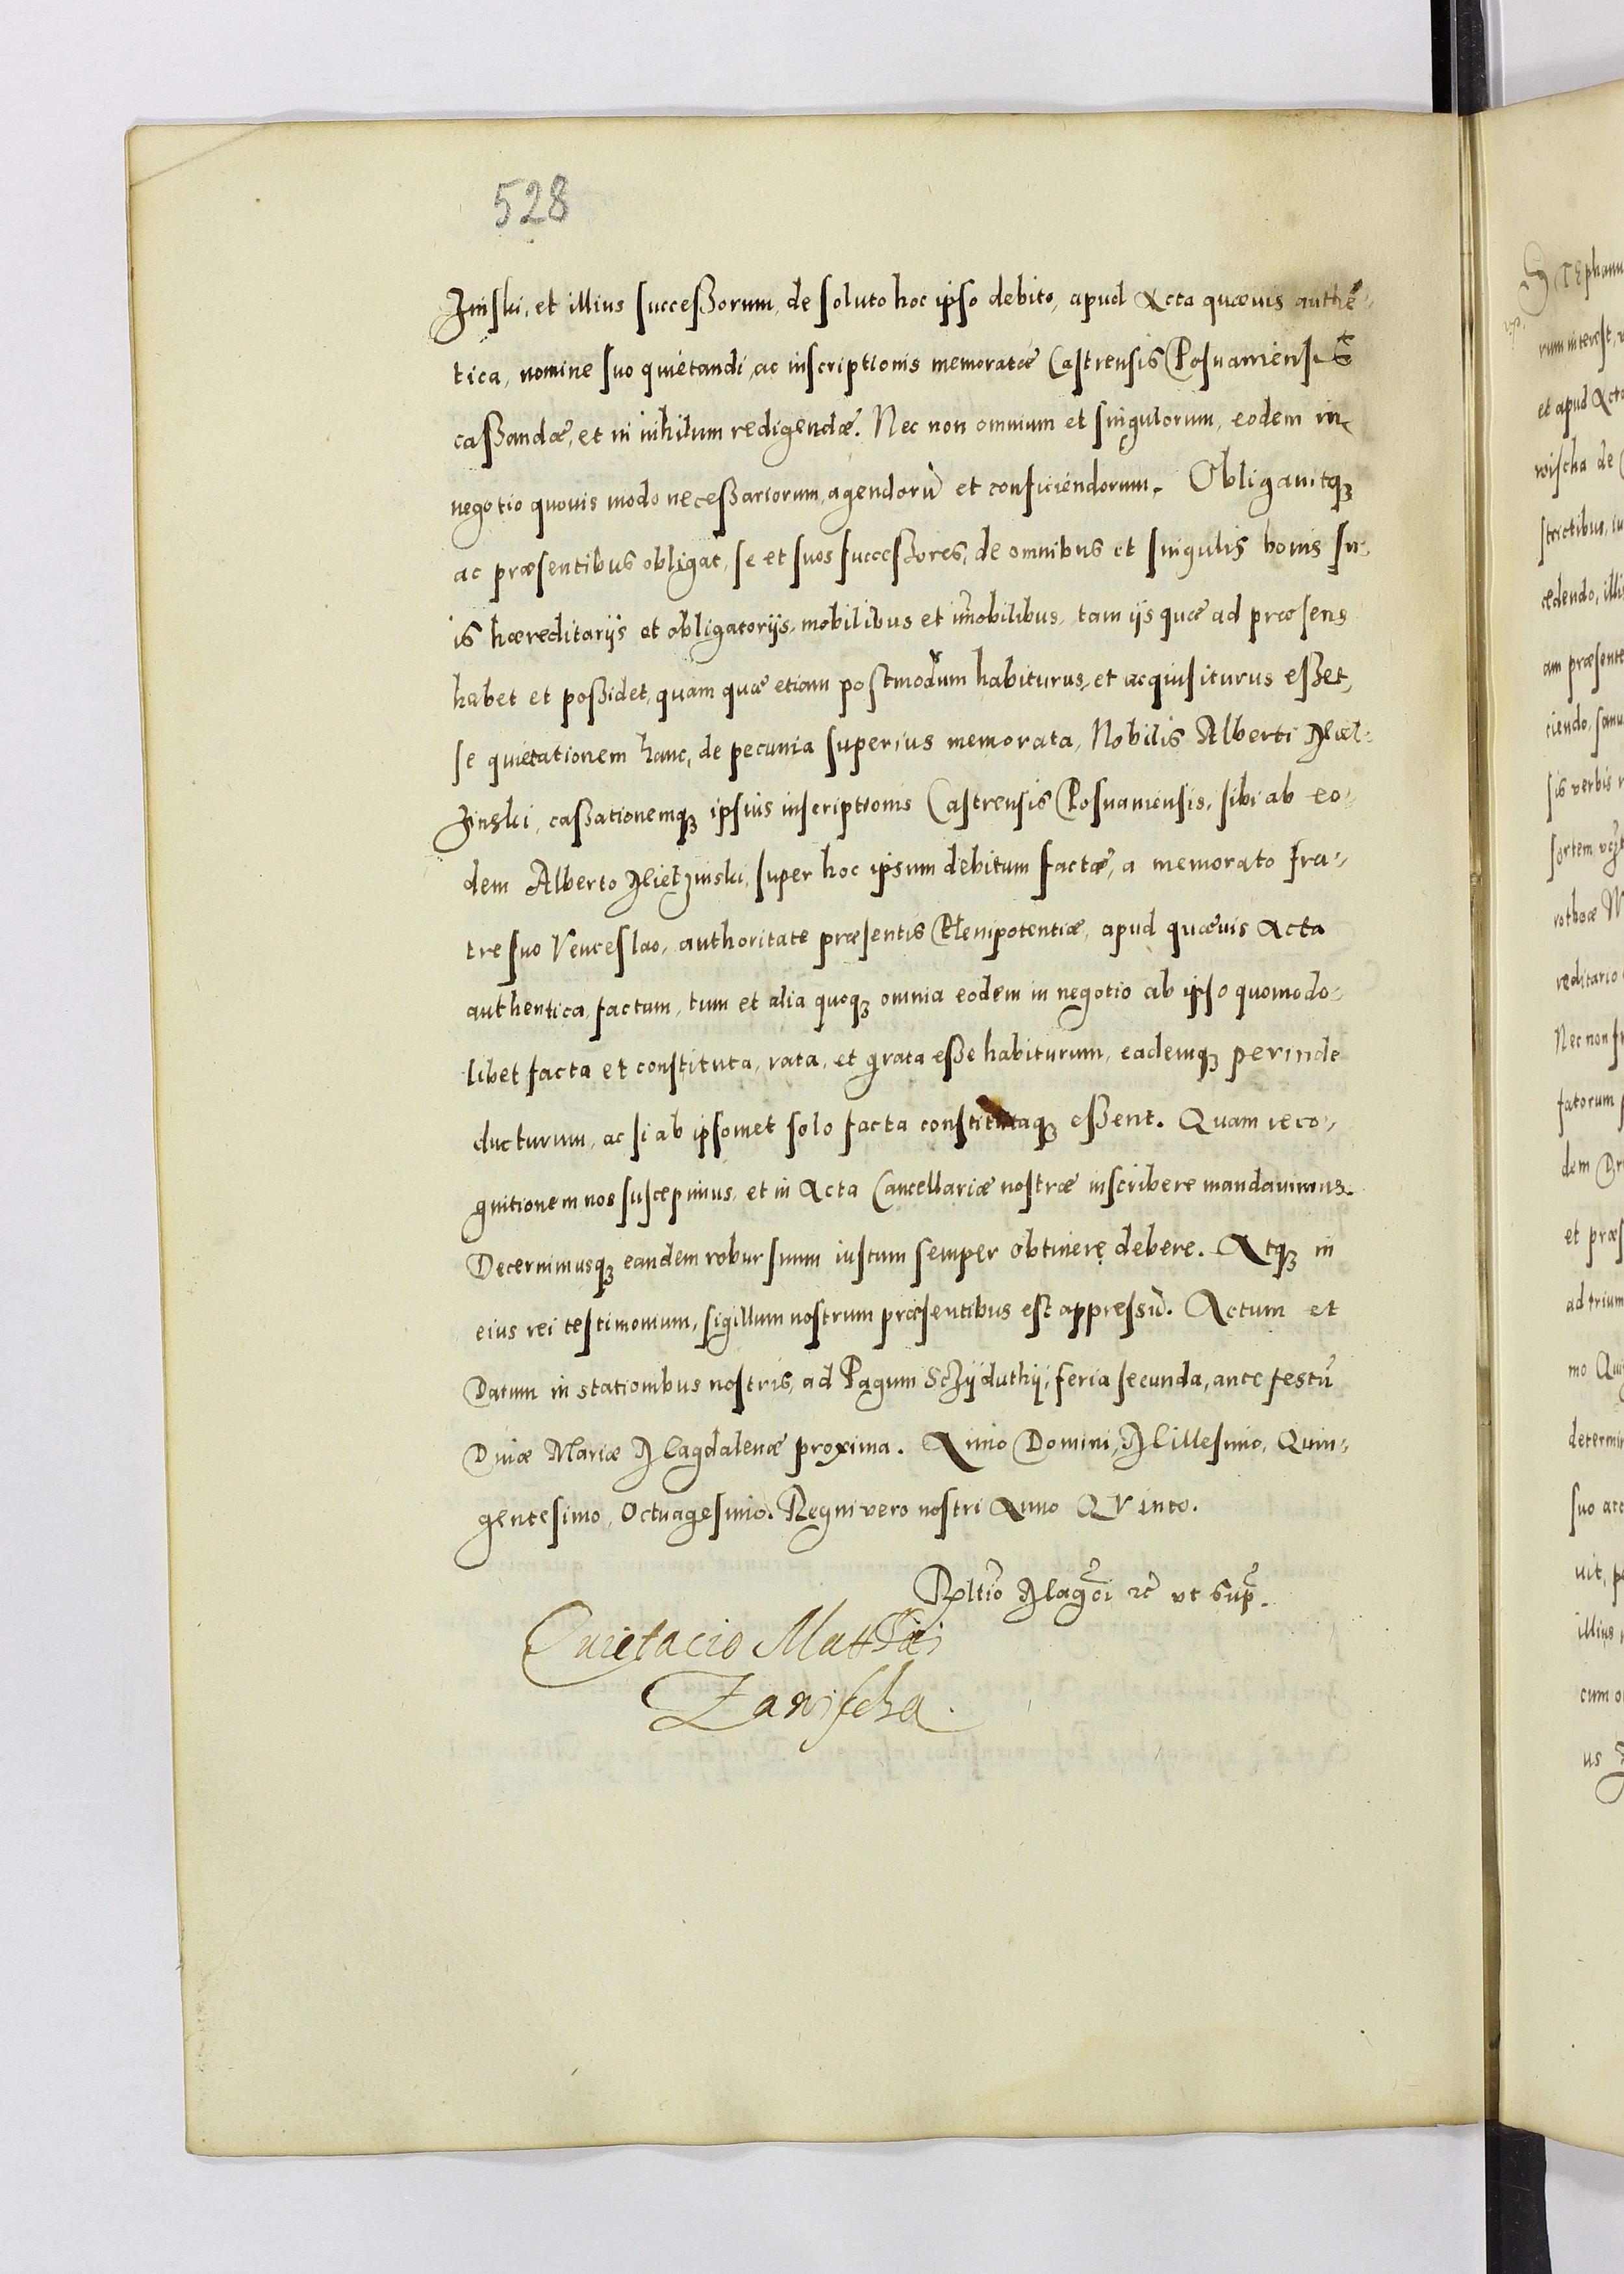 528
Zinski, et illius successorum, de soluto hoc ipso debito, apud Acta quævis authē-
tica, nomine suo quietandi, ac inscriptionis memoratæ Castrensis Posnaniensis
cassandæ, et in nihilum redigendæ. Nec non omnium et singulorum, eodem in
negotio quovis modo necessariorum, agendorū et conficiendorum. Obligavitq3
ac præsentibus obligat, se et suos successores, de omnibus et singulis bonis su-
is hæreditarijs et obligatorijs, mobilibus et im̄obilibus, tam ijs quæ ad præsens
habet et possidet, quam quæ etiam postmodum habiturus, et acquisiturus esset,
se quietationem hanc, de pecunia superius memorata, Nobilis Alberti Miel-
Zinski, cassationemq3 ipsius inscriptionis Castrensis Posnaniensis, sibi ab eo-
dem Alberto Mielzinski, super hoc ipsum debitum factæ, a memorato fra-
tre suo Venceslao, authoritate præsentis Plenipotentiæ, apud quævis Acta
authentica, factam, tum et alia quoq3 omnia eodem in negotio ab ipso quomodo-
libet facta et constituta, rata, et grata esse habiturum, eademq3 perinde
ducturum, ac si ab ipsomet solo facta constitutaq3 essent. Quam reco-
gnitionem nos suscepimus, et in Acta Cancellariæ nostræ inscribere mandavimus.
Decernimusq3 eandem robur suum iustum semper obtinere debere. Atq3 in
eius rei testimonium, sigillum nostrum præsentibus est appressū. Actum et
Datum in stationibus nostris, ad Pagum Sczÿduthÿ, feria secunda, ante festū
Divæ Mariæ Magdalenæ proxima. Anno Domini, Millesimo, Quin-
gentesimo, Octuagesimo. Regni vero nostri Anno QVinto.
Rltio Magci rc ut sup.
Quietacio Matthiæ
Zawischa.